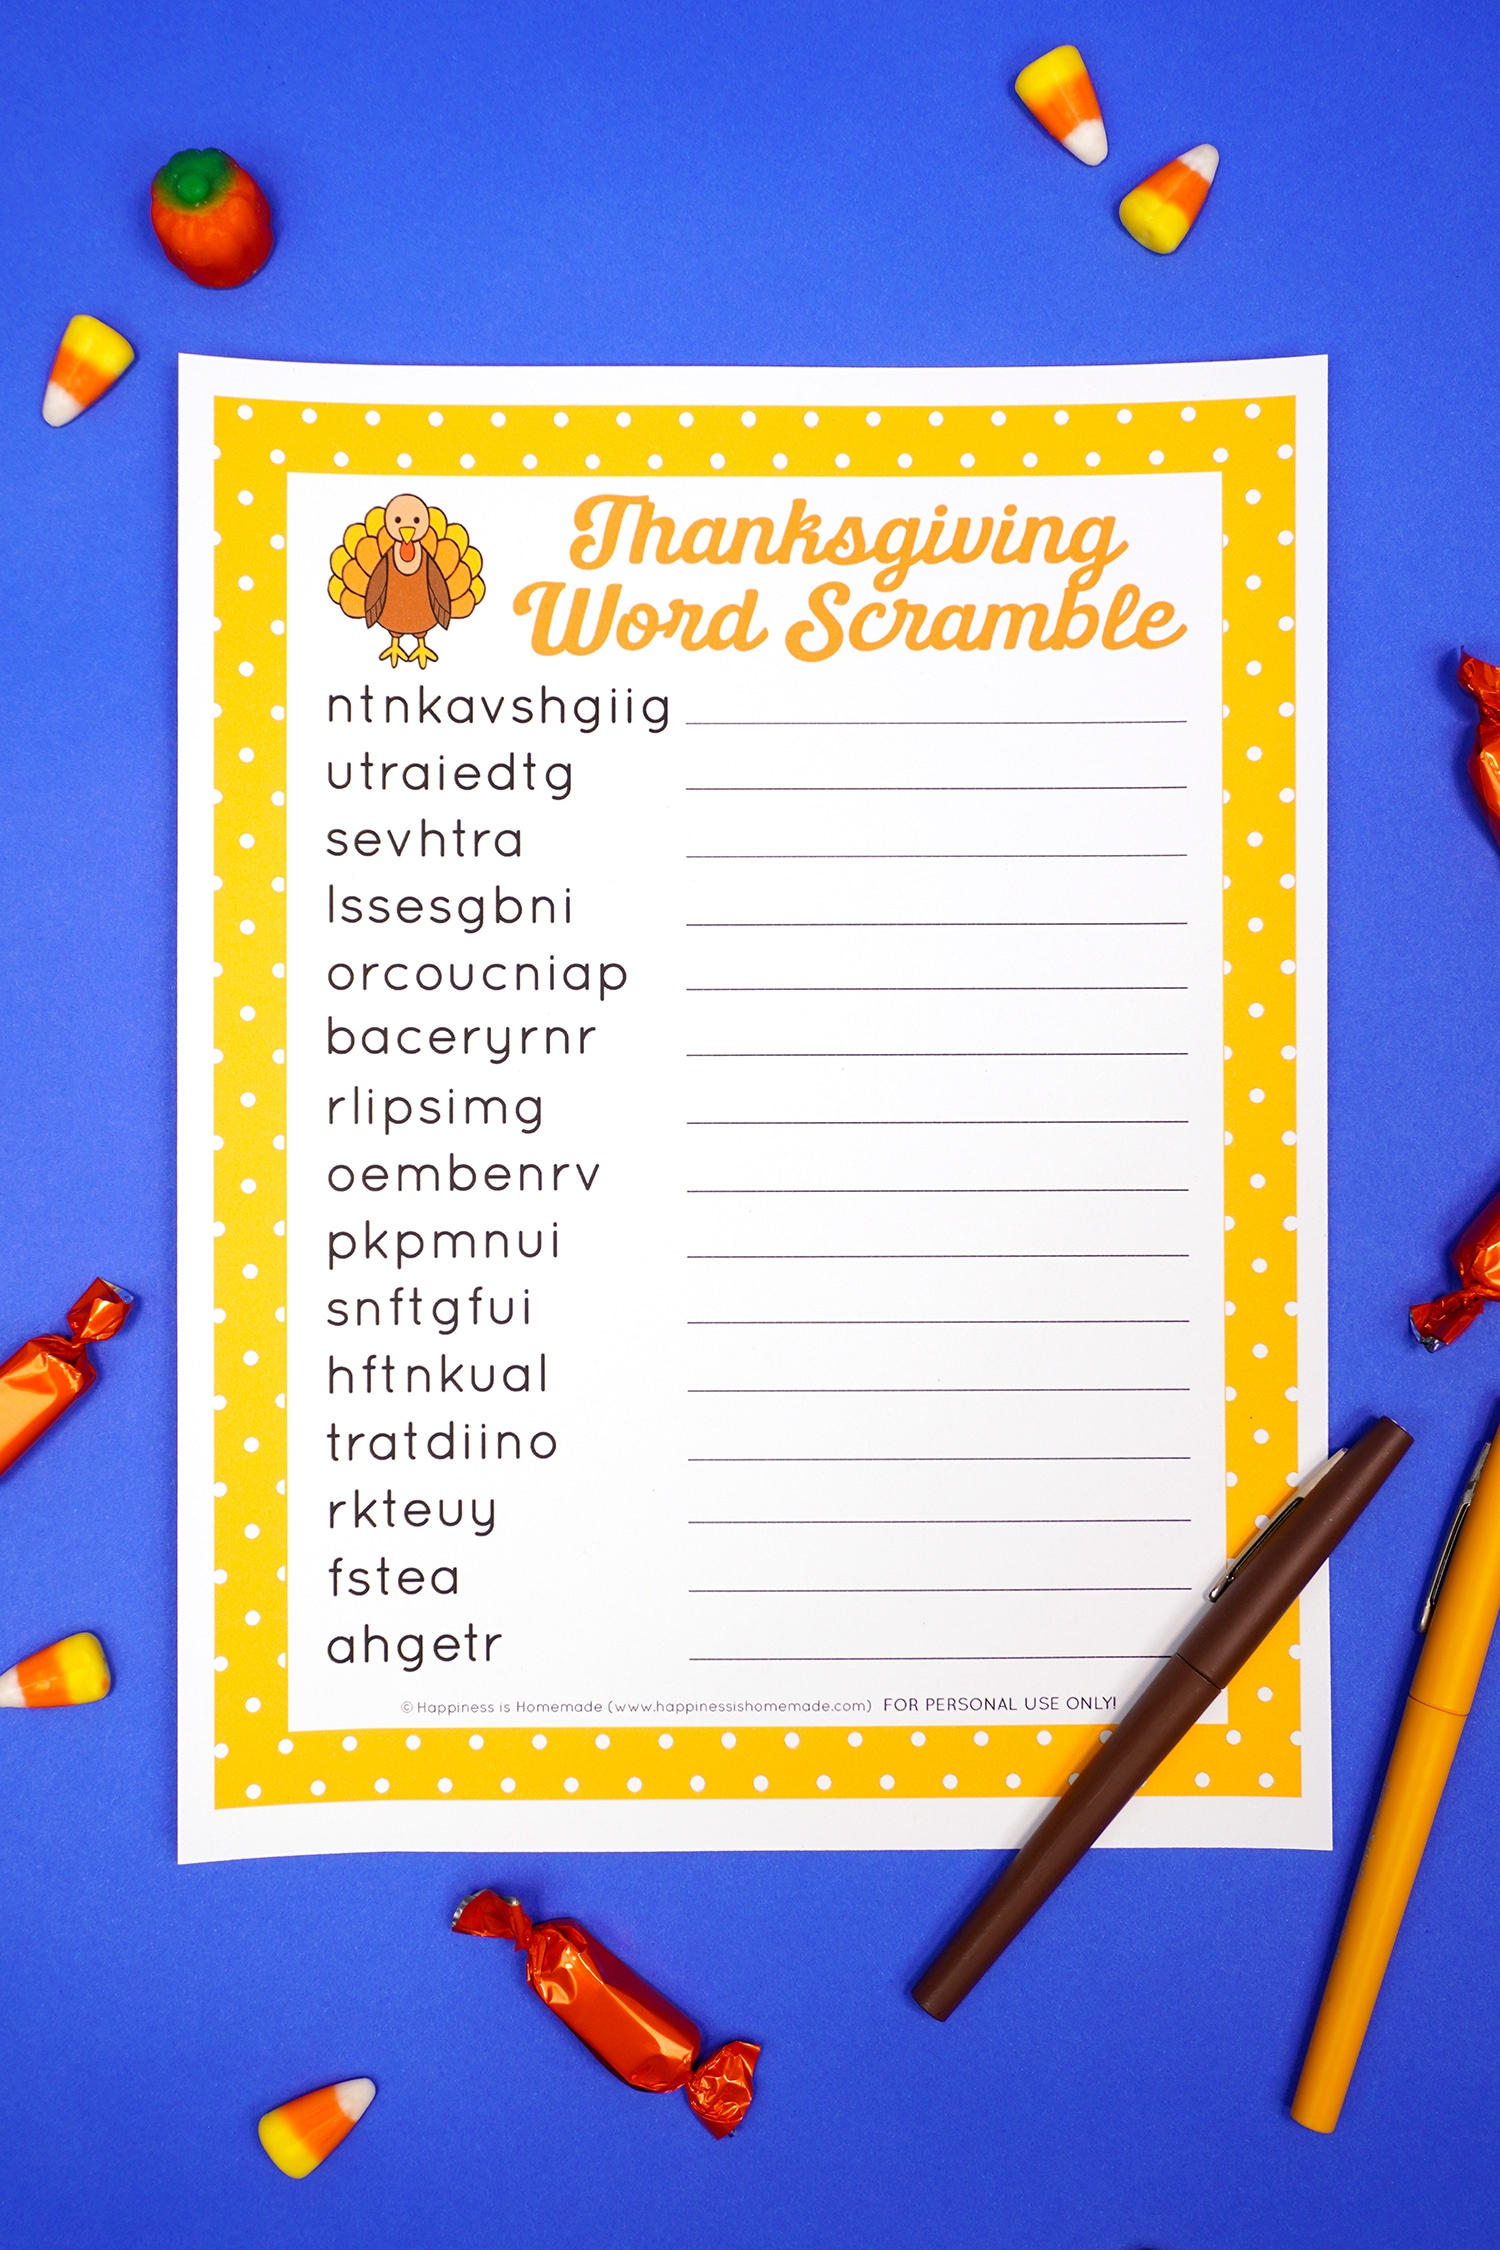 Thanksgiving
Word Scramble
ntnkavshgiig
utraiedtg
sevhtra
lssesgbni
orcoucniap
baceryrnr
rlipsimg
oembenrv
pkpmnui
snftgfui
hftnkual
tratdiino
rkteuy
fstea
ahgetr
© Happiness is Homemade (www.happinessishomemade.com) FOR PERSONAL USE ONLY!